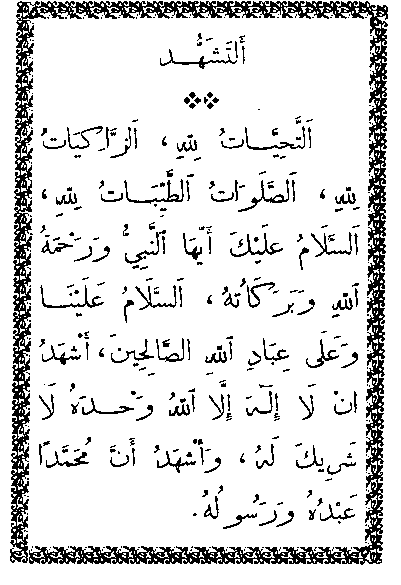 اَلتَّشَهُّد
اَلتَّحِيَّاتُ لِلّٰهِ، اَلزَّاكِيَاتُ
لِلّٰهِ، اَلصَّلَوَاتُ الطَّيِّبَاتُ لِلّٰهِ،
اَلسَّلَامُ عَلَيْكَ أَيُّهَا النَّبِيُّ وَرَحْمَةُ
اللّٰهِ وَبَرَكَاتُهُ، اَلسَّلَامُ عَلَيْنَا
وَعَلَى عِبَادِ اللّٰهِ الصَّالِحِينَ، أَشْهَدُ
انْ لَا إِلٰهَ إِلَّا اللّٰهُ وَحْدَهُ لَا
شَرِيكَ لَهُ، وَأَشْهَدُ أَنَّ مُحَمَّدًا
عَبْدُهُ وَرَسُولُهُ.